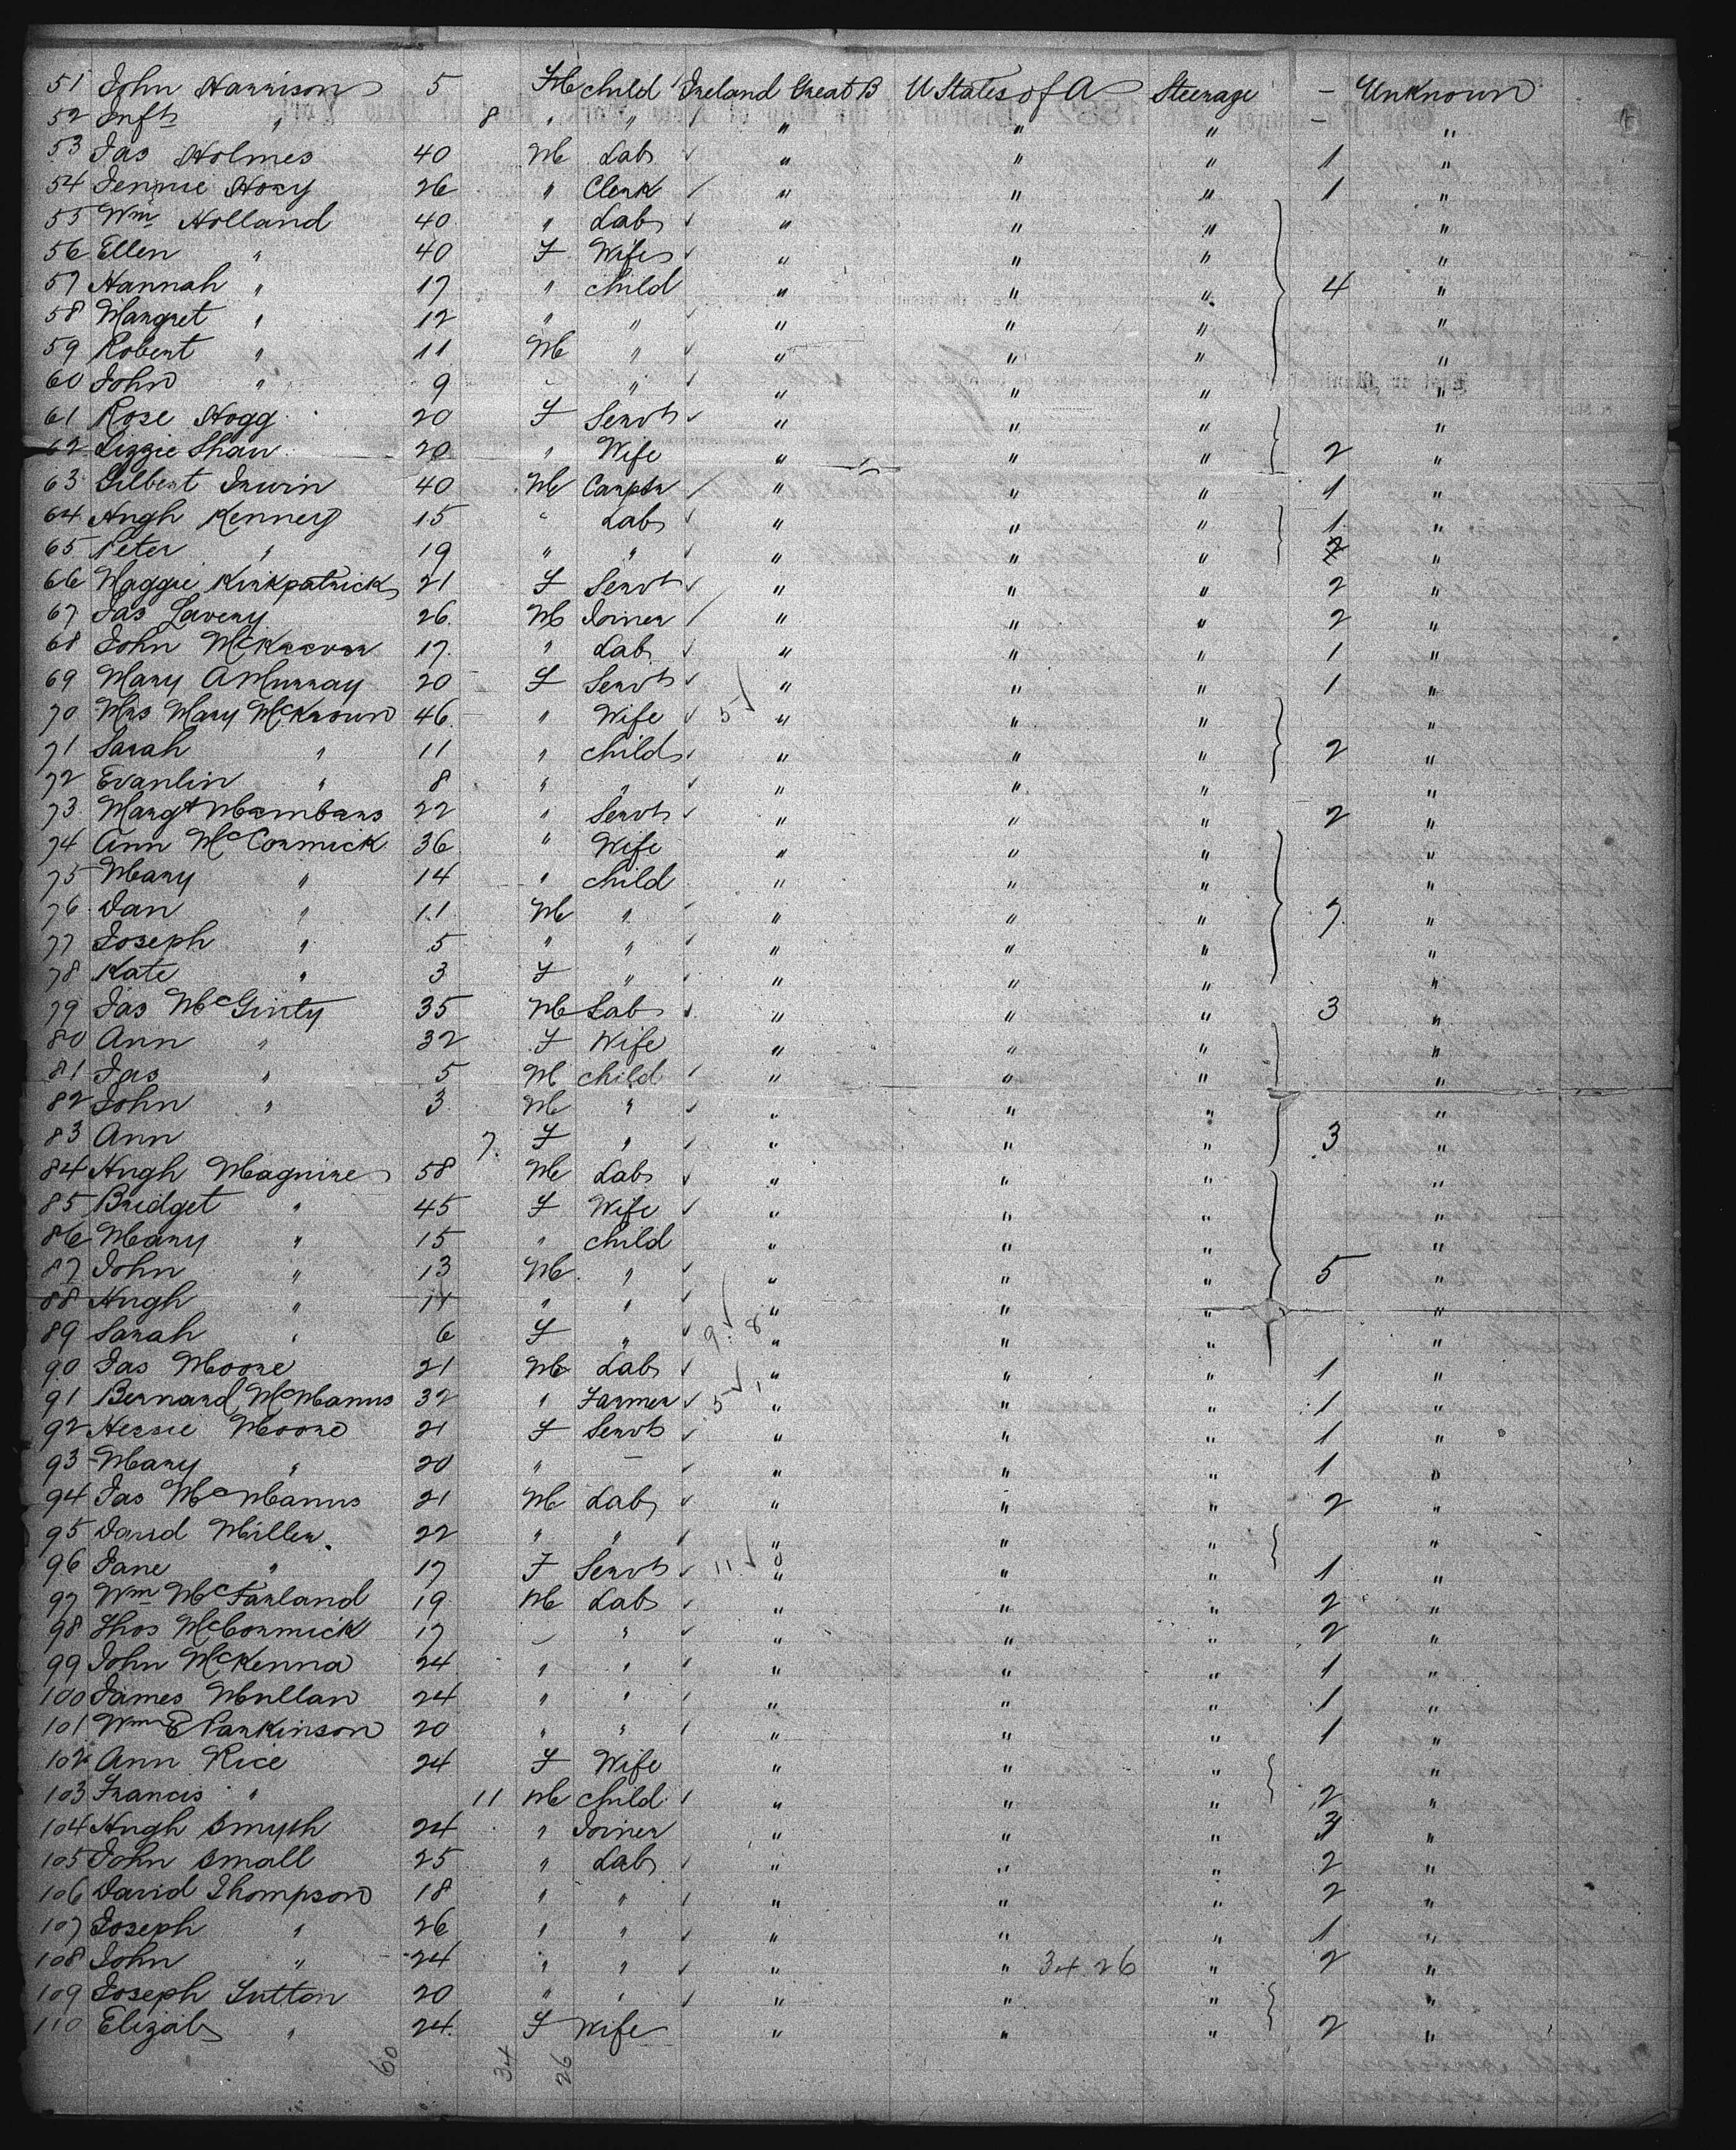 51 John Harrison 5 M child Ireland Great B U States of A Steerage - Unknown
52 Inft " 8 " " " " " - "
53 Jas Holmes 40 M Lab " " " 1 "
54 Jennie Hoey 26 " Clerk " " " 1 "
55 Wm Holland 40 " Lab " " " "
56 Ellen " 40 F Wife " " " "
57 Hannah " 17 " child " " " 4 "
58 Margret " 12 " " " " " "
59 Robert " 11 M " " " " "
60 John " 9 " " " " " "
61 Rose Hogg 20 F Servt " " " "
62 Lizzie Shaw 20 " Wife " " " 2 "
63 Gilbert Irwin 40 M Carptr " " " 1 "
64 Hugh Kenney 15 " Lab " " " 1 "
65 Peter " 19 " " " " " 2 "
66 Maggie Kirkpatrick 21 F Servt " " " 2 "
67 Jas Lavery 26 M Joiner " " " 2 "
68 John 17 " Lab " " " 1 "
69 Mary A Murray 20 F Servt " " " 1 "
70 Mrs Mary McKeown 46 " Wife 5 " " " "
71 Sarah " 11 " child " " " 2 "
72 Evanlin " 8 " " " " " "
73 Margt 22 " Servt " " " 2 "
74 Ann McCormick 36 " Wife " " " "
75 Mary " 14 " child " " " "
76 Dan " 11 M " " " " 7 "
77 Joseph " 5 " " " " " "
78 Kate " 3 F " " " " "
79 Jas McGinty 35 M Lab " " " 3 "
80 Ann " 32 F Wife " " " "
81 Jas " 5 M child " " " "
82 John " 3 M " " " " "
83 Ann 7 F " " " " 3 "
84 Hugh Maguire 58 M Lab " " " "
85 Bridget " 45 F Wife " " " "
86 Mary " 15 " child " " " "
87 John " 13 M " " " " 5 "
88 Hugh " 11 " " " " " "
89 Sarah " 6 F " 9 8 " " " "
90 Jas Moore 21 M Lab " " " 1 "
91 Bernard McManus 32 " Farmer 5 1 " " " 1 "
92 Hessie Moore 21 F Servt " " " 1 "
93 Mary " 20 " - " " " 1 "
94 Jas McManus 21 M Lab " " " 2 "
95 David Miller 22 " " " " " "
96 Jane " 17 F Servt 11 8 " " " 1 "
97 Wm McFarland 19 M Lab " " " 2 "
98 Thos McCormick 17 " " " " " 2 "
99 John McKenna 24 " " " " " 1 "
100 James Mullan 24 " " " " " 1 "
101 Wm E Parkinson 20 " " " " " 1 "
102 Ann Rice 24 F Wife " " " "
103 Francis " 11 M child " " " 2 "
104 Hugh Smyth 24 " Joiner " " " 3 "
105 John Small 25 " Lab " " " 2 "
106 David Thompson 18 " " " " " 2 "
107 Joseph " 26 " " " " " 1 "
108 John " 24 " " " " 34 26 " 2 "
109 Joseph Sutton 20 " " " " " "
110 Elizab " 24 F Wife " " " 2 "
60 34 26